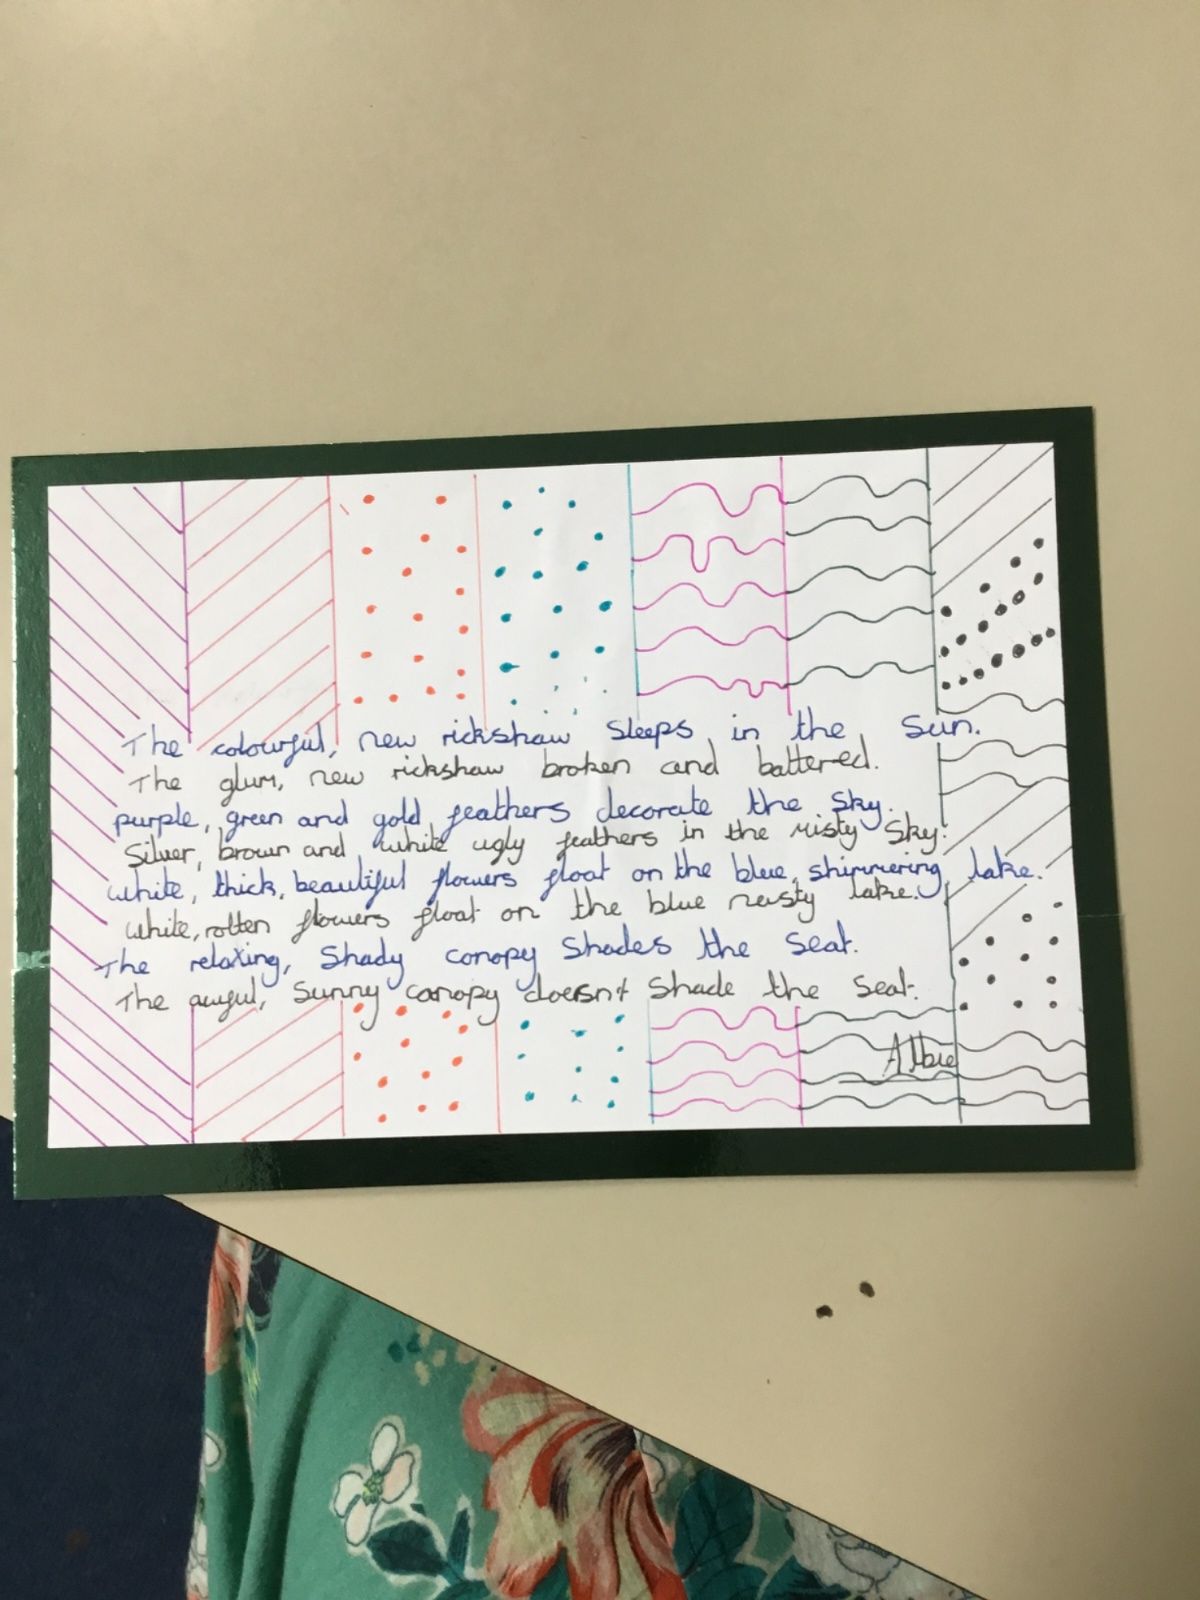 The colourful, new rickshaw sleeps in the sun.
The glum, new rickshaw broken and battered.
purple, green and gold feathers decorate the sky.
Silver, brown and white ugly feathers in the misty sky.
white, thick, beautiful flowers float on the blue, shimmering lake.
white, rotten flowers float on the blue nasty lake.
The relaxing, shady canopy shades the seat.
The awful, sunny canopy doesn't shade the seat.
Albie